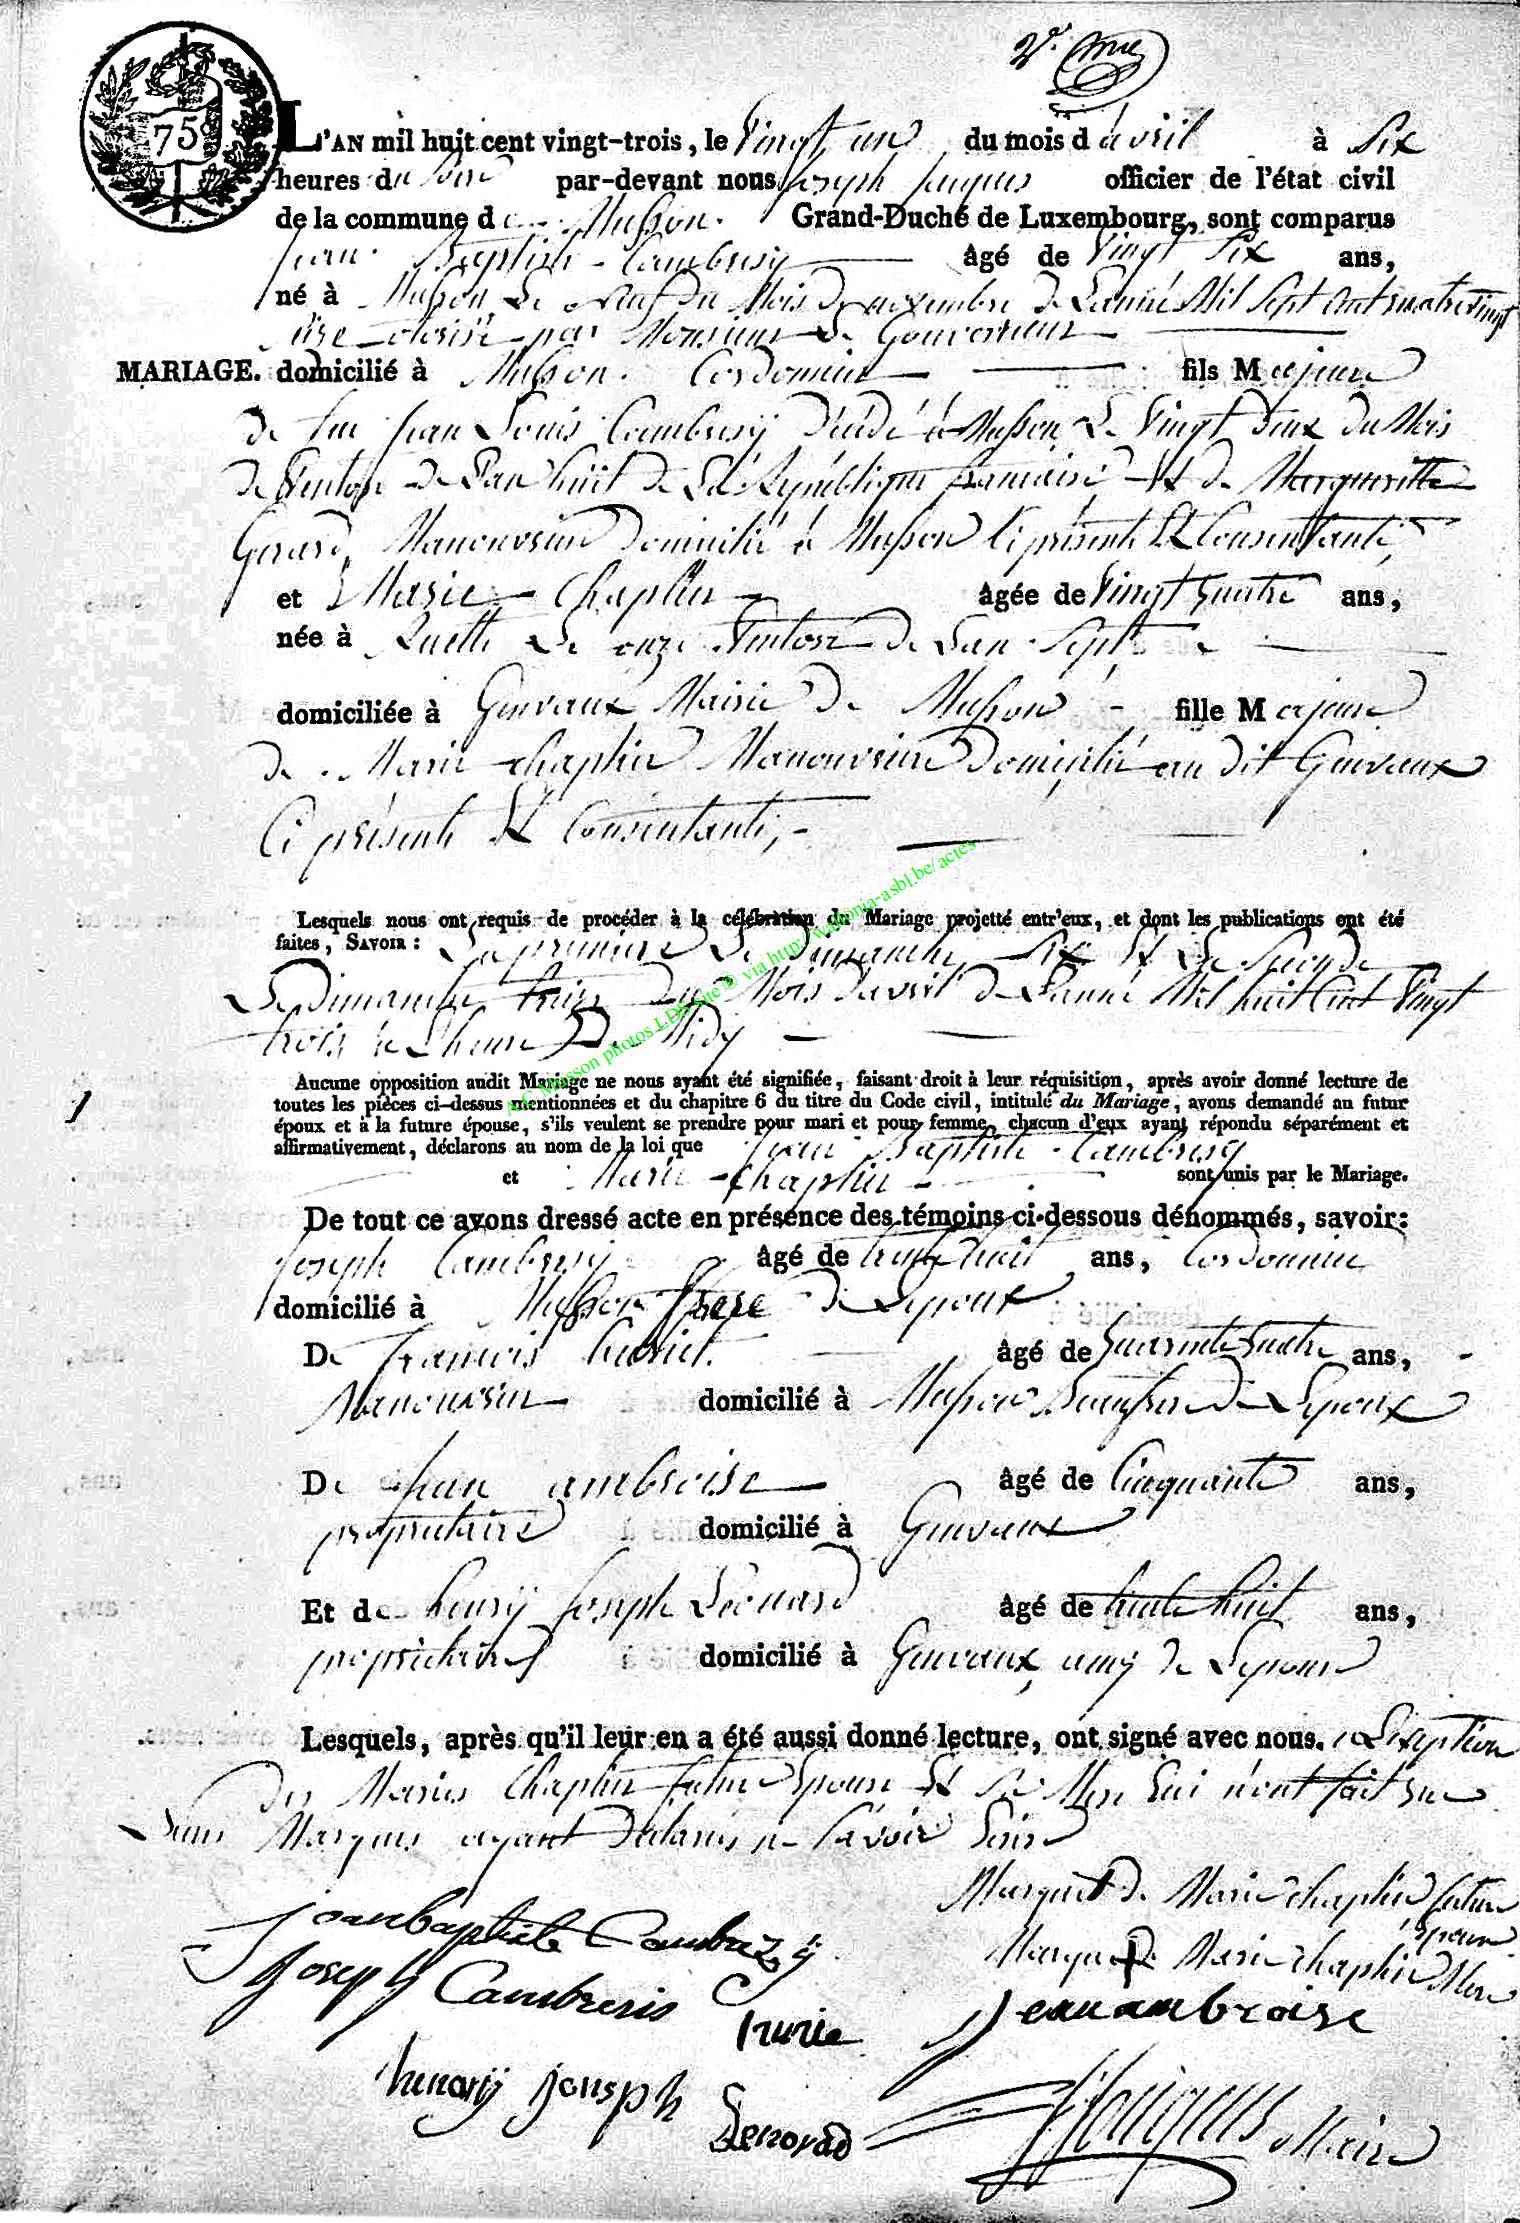 2e.
75
L'AN mil huit cent vingt-trois, le Vingt un du mois d'avril à Six
heures du Soir par-devant nous Joseph Jacques officier de l'état civil
de la commune de Musson. Grand-Duché de Luxembourg, sont comparus
Jean Baptiste Cambresÿ âgé de Vingt Six ans,
né à Musson, Le Neuf du Mois de novembre de L'année Mil Sept cent quatre vingt
Seize par Monsieur Le Gouverneur
MARIAGE. domicilié à Musson. Cordonnier fils Majeur
de feu Jean Louis Cambresÿ décédé à Musson, Le Vingt deux du Mois
de Ventose de L'an huit de La République francaise, Et de Margueritte
Gerard, Manouvriere domiciliée à Musson Ci présente Et Consentante,
et Marie Chaplier âgée de Vingt quatre ans,
née à Ruette Le onze Ventose de L'an Sept
domiciliée à Ginvaux Mairie de Musson fille Majeure
de Marie chaplier Manouvriere domiciliée au dit Ginvaux
Ci présente Et Consentante,
Lesquels nous ont requis de procéder à la célébration du Mariage projetté entr'eux, et dont les publications ont été
faites, SAVOIR : La premiere Le Dimanche Six Et La Seconde
Le Dimanche treize du Mois d'avril de L'année Mil huit Cent Vingt
trois à L'heure De Midy
Aucune opposition audit Mariage ne nous ayant été signifiée, faisant droit à leur réquisition, après avoir donné lecture de
toutes les pièces ci-dessus mentionnées et du chapitre 6 du titre du Code civil, intitulé du Mariage, avons demandé au futur
époux et à la future épouse, s'ils veulent se prendre pour mari et pour femme, chacun d'eux ayant répondu séparément et
affirmativement, déclarons au nom de la loi que Jean Baptiste Cambresÿ
et Marie chaplier sont unis par le Mariage.
De tout ce avons dressé acte en présence des témoins ci-dessous dénommés, savoir:
Joseph Cambresÿ âgé de trente huit ans, Cordonnier
domicilié à Musson frere de L'epoux
De Francois âgé de Quarante quatre ans,
Manouvrier domicilié à Musson Beaufrere de L'epoux
De Jean ambroise âgé de Cinquante ans,
proprietaire domicilié à Ginvaux
Et de henrÿ Joseph Léonard âgé de trente huit ans,
proprietaire domicilié à Ginvaux, amy de L'epouse
Lesquels, après qu'il leur en a été aussi donné lecture, ont signé avec nous. a L'exeption
des Maries Chaplier future Epouse Et Sa Mere qui n'ont fait que
Leurs Marques ayant Déclarées ne Savoir Ecrire
Marque de Marie chaplier future
Epouse
Marque de Marie chaplier Mere
jeanbaptiste Cambrezÿ
Joseph Cambresis
jean ambroise
henorÿ jonseph
Lenorad
J Jacques Maire
A.C. Musson photos LDS Site © via http://wallonia-asbl.be/actes